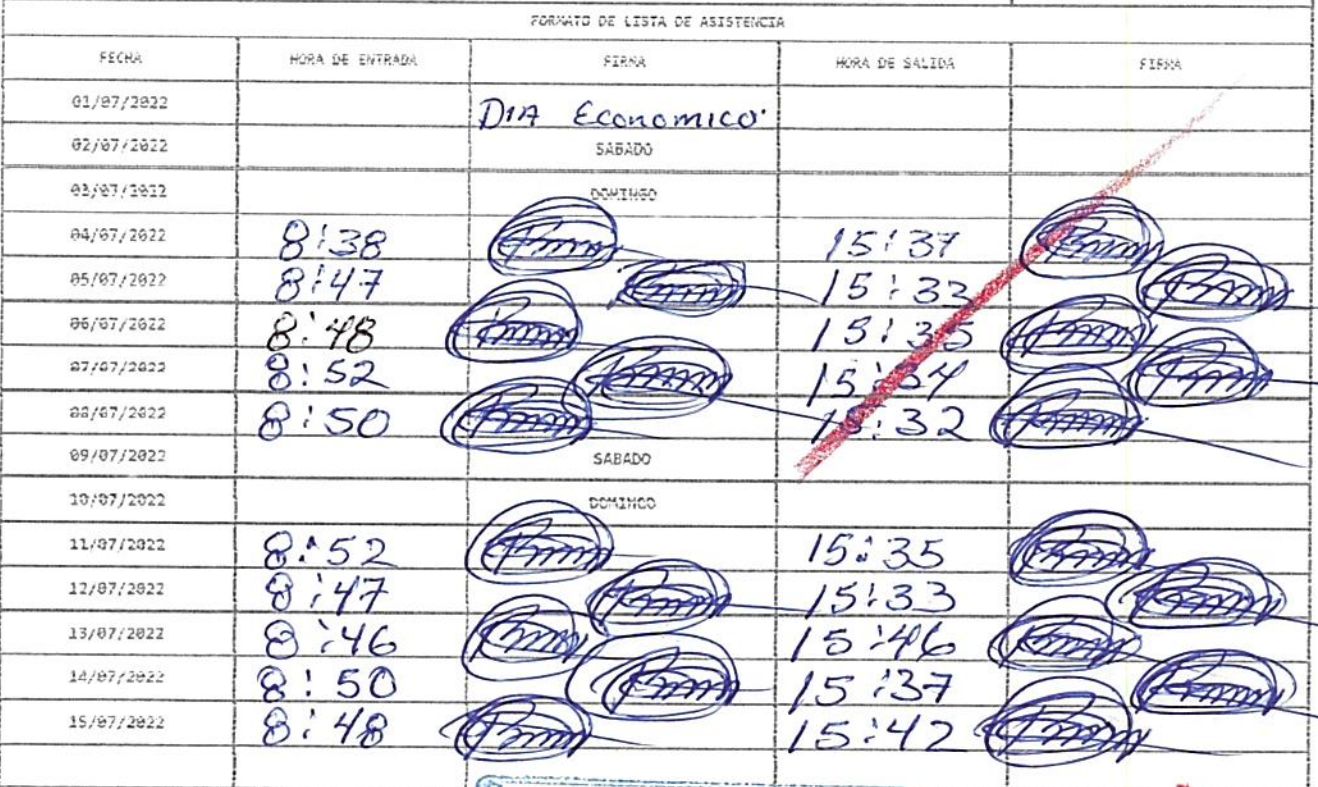 FORMATO DE LISTA DE ASISTENCIA
FECHA HORA DE ENTRADA FIRMA HORA DE SALIDA FIRMA
01/07/2022 DIA Economico
02/07/2022 SABADO
03/07/2022 DOMINGO
04/07/2022 8:38 15:37
05/07/2022 8:47 15:33
06/07/2022 8:48 15:35
07/07/2022 8:52 15:34
08/07/2022 8:50 15:32
09/07/2022 SABADO
10/07/2022 DOMINGO
11/07/2022 8:52 15:35
12/07/2022 8:47 15:33
13/07/2022 8:46 15:46
14/07/2022 8:50 15:37
15/07/2022 8:48 15:42